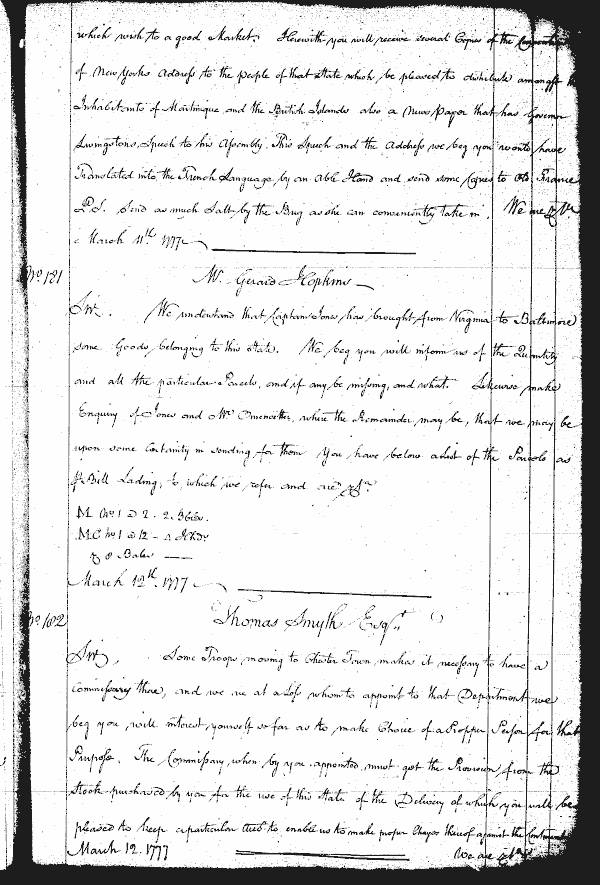 which wish to a good Market. Herewith you will receive several Copies of the
of New Yorks Address to the People of that State which, be pleased to distribute amongst the
Inhabitants of Martinque and the British Islands also a News Paper that has Govern
Livingstons Speech to his Assembly. This Speech and the Address we beg you would have
Translated into the French Language by an Able Hand and send some Copies to Old France
P.S. Send as much Salt by the Brig as she can conveniently take in. We are &c
March 11th. 1777
No. 181
Mr. Gerard Hopkins
Sir. We understand that Captain Jones has brought from Virginia to Baltimore
some Goods belonging to this State. We beg you will inform us of the Quantity
and all the particular Parcels, and if any be missing, and what. Likewise make
Enquiry of Jones and Mr. where the Remainder may be, that we may be
upon some Certainty in sending for them You have below a List of the Parcels as
Bill Lading, to which we refer and are &c
M No. 1 @ 2 - 2
M.C No. 1 @ 12 -
& 8 Bales
March 12th. 1777
No. 182
Thomas Smyth Esqr.
Sir, Some Troops moving to Chester Town makes it necessary to have a
Commissary there, and we are at a Loss whom to appoint to that Department we
beg you will interest yourself so far as to make Choice of a Propper Person for that
Purpose. The Commissary when by you appointed must get the Provision from the
Stock purchased by you for the use of this State of the Delivery of which you will be
pleased to keep a particular to enable us to make proper Charges thereof against the
March 12. 1777 We are &c